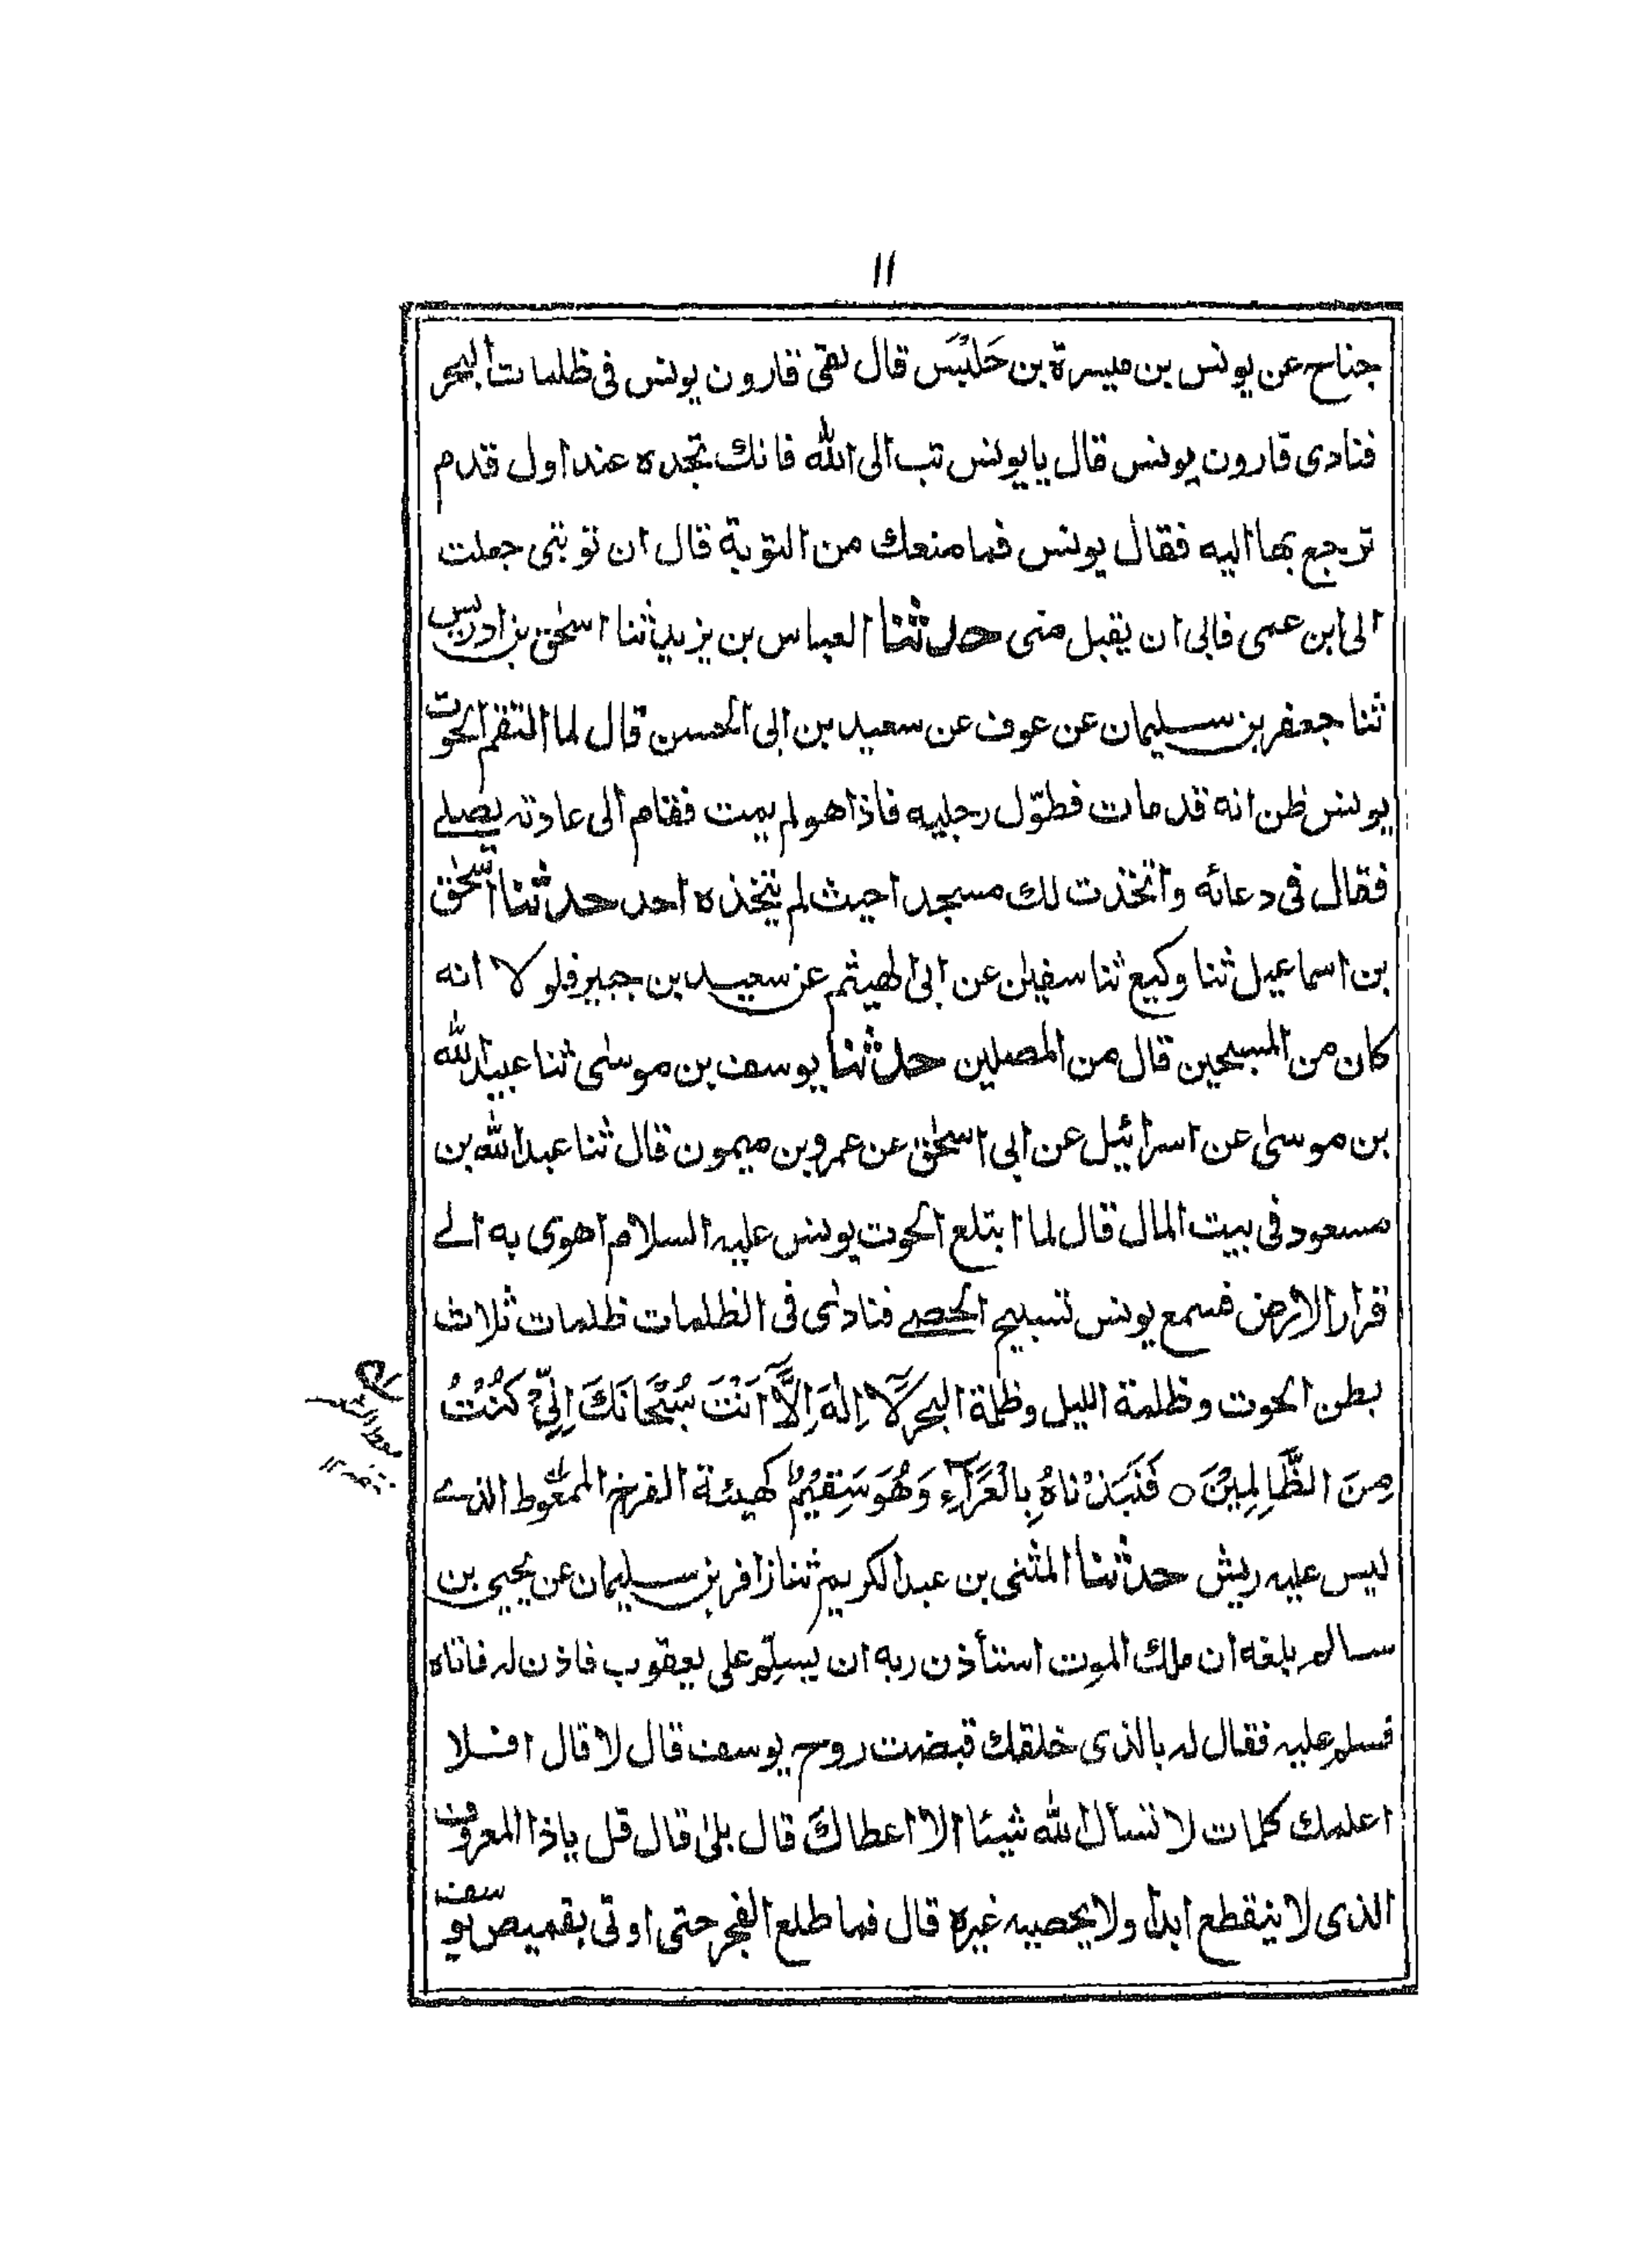 ۱۱
جناح عن يونس بن ميسرة بن حَلْبَسَ قال لقى قارون يونس فى ظلمات البحر
فنادى قارون يونس قال يا يونس تب الى الله فانك تجده عند اول قدم
ترجع بها اليه فقال يونس فما منعك من التوبة قال ان توبتى جعلت
الى ابن عمى فابى ان يقبل منى حدثنا العباس بن يزيد ثنا اسحٰق بن ادريس
ثنا جعفر بن سليمان عن عوف عن سعيد بن ابى الحسن قال لما التقم الحوت
يونس ظن انه قد مات فطوّل رجليه فاذا هو لم يمت فقام الى عادته يصلے
فقال فى دعائه واتخذت لك مسجدا حيث لم يتخذه احد حدثنا اسحٰق
بن اسماعيل ثنا وكيع ثنا سفيٰن عن ابى الهيثم عن سعيد بن جبير فلولا انه
كان من المسبحين قال من المصلين حدثنا يوسف بن موسٰى ثنا عبيد الله
بن موسىٰ عن اسرائيل عن ابى اسحٰق عن عمرو بن ميمون قال ثنا عبد الله بن
مسعود فى بيت المال قال لما ابتلع الحوت يونس عليه السلام اهوى به الے
قرار الارض فسمع يونس تسبيح الحصے فنادٰى فى الظلمات ظلمات ثلاث
بطن الحوت وظلمة الليل وظلمة البحر لَآ اِلٰهَ اِلَّآ اَنْتَ سُبْحَانَكَ اِنِّيْ كُنْتُ
مِنَ الظَّالِمِيْنَ ○ فَنَبَذْنَاهُ بِالْعَرَآءِ وَهُوَ سَقِيْمٌ كهيئة الفرخ الممعّوط الذے
ليس عليه ريش حدثنا المثنى بن عبد الكريم ثنا زافر بن سليمان عن يحيى بن
سالم بلغه ان ملك الموت استأذن ربه ان يسلّم على يعقوب فاذن له فاتاه
فسلم عليه فقال له بالذى خلقك قبضت روح يوسف قال لا قال افلا
اعلمك كلمات لا تسأل الله شيئا الا اعطاكَ قال بلىٰ قال قل ياذا المعروف
الذى لا ينقطع ابدا ولا يحصيه غيره قال فما طلع الفجر حتى اوتى بقميص يوسف